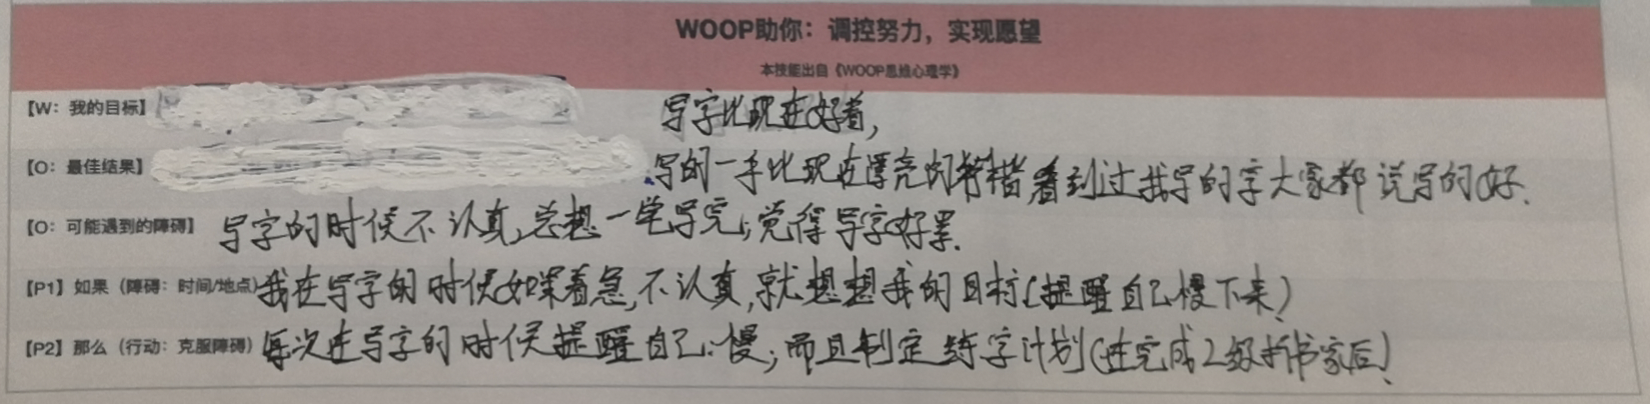 WOOP助你：调控努力，实现愿望
本技能出自《WOOP思维心理学》
【W：我的目标】 写字比现在好看，
【O：最佳结果】 写的一手比现在漂亮的 看到过我写的字大家都说写的好.
【O：可能遇到的障碍】 写字的时候不认真，总想一笔写完，觉得写字好累.
【P1】如果（障碍：时间/地点）我在写字的时候如果着急，不认真，就想想我的目标（提醒自己慢下来）
【P2】那么（行动：克服障碍）每次在写字的时候提醒自己：慢，而且制定练字计划（在完成2级拆书家后）